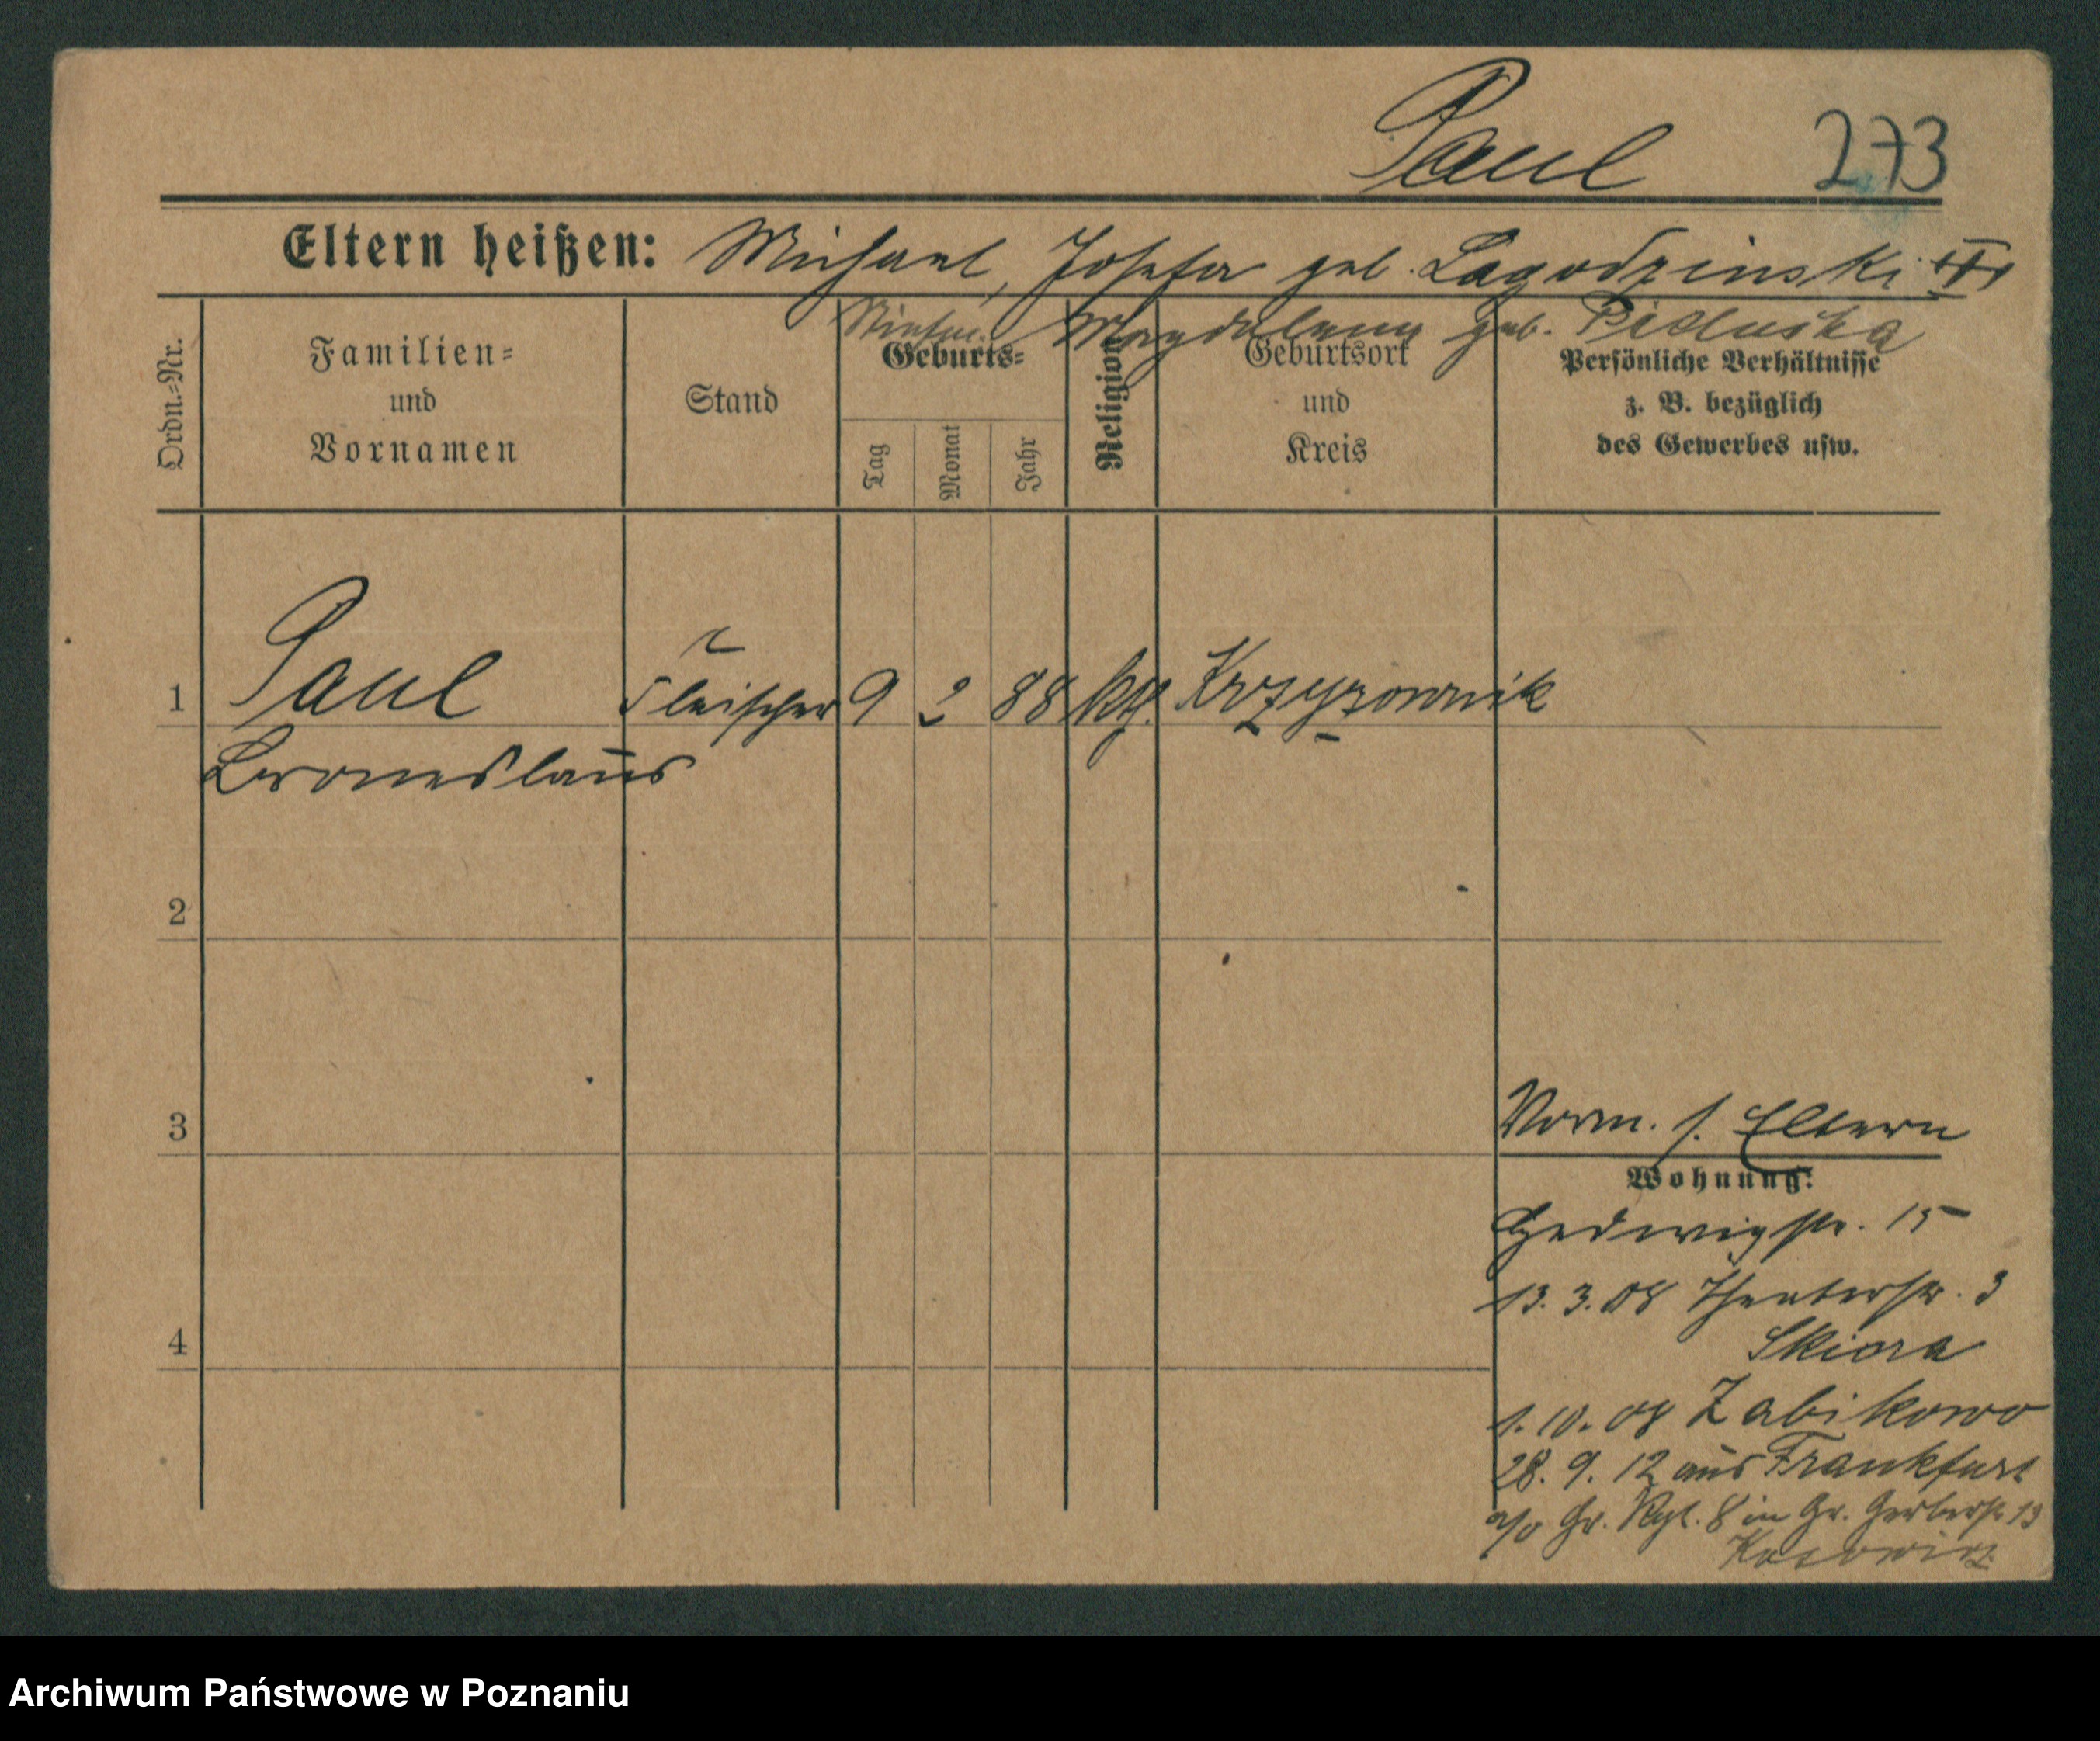 Paul 273
Eltern heißen: Michael, Josefa geb. Lagodzinski
Magdalena geb. Pietruska
Ordn.=Nr.
Familien=
und
Vornamen
Stand
Geburts=
Tag
Monat
Jahr
Religion
Geburtsort
und
Kreis
Persönliche Verhältnisse
z. B. bezüglich
des Gewerbes usw.
1 Paul Fleischer 9 2 88 kth. Krzyzownik
Bronislaus
2
3
Vorm. s. Eltern
Wohnung:
Hedwigstr. 15
13. 3. 08 Theaterstr. 3
Skiora
4
1. 10. 08 Zabikowo
28. 9. 12 aus Frankfurt
a/O Gr. Rgt. 8 in Gr. Gerberstr. 13
Archiwum Państwowe w Poznaniu